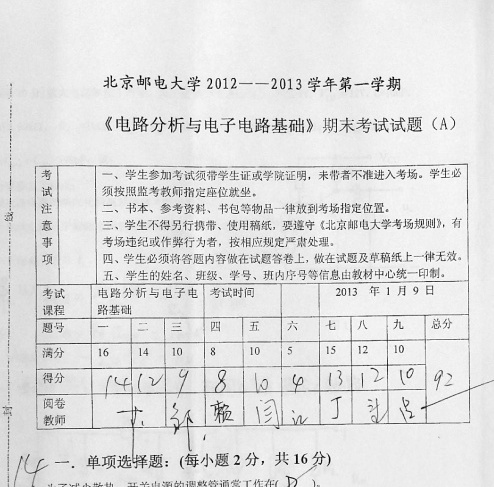 北京邮电大学 2012——2013 学年第一学期
《电路分析与电子电路基础》期末考试试题（A）
考试注意事项
一、学生参加考试须带学生证或学院证明，未带者不准进入考场。学生必
须按照监考教师指定座位就坐。
二、书本、参考资料、书包等物品一律放到考场指定位置。
三、学生不得另行携带、使用稿纸，要遵守《北京邮电大学考场规则》，有
考场违纪或作弊行为者，按相应规定严肃处理。
四、学生必须将答题内容做在试题答卷上，做在试题及草稿纸上一律无效。
五、学生的姓名、班级、学号、班内序号等信息由教材中心统一印制。
考试课程 电路分析与电子电路基础 考试时间 2013 年 1 月 9 日
题号 一 二 三 四 五 六 七 八 九 总分
满分 16 14 10 8 10 5 15 12 10
得分 14 12 9 8 10 4 13 12 10 92
阅卷教师 赖 闫 丁
14 一．单项选择题：(每小题 2 分，共 16 分)
为了减少散热，开关电源的调整管通常工作在( D )。